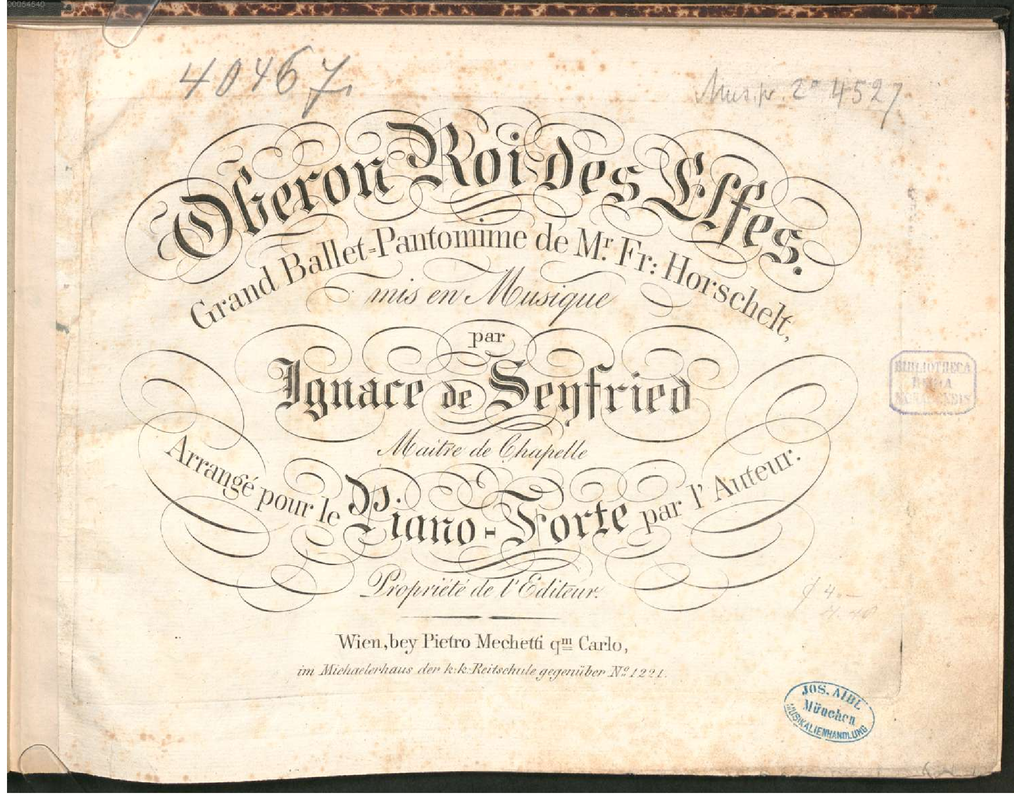 00054540
40467.
Mus. pr. 2° 4527
Oberon Roi des Elfes.
Grand Ballet=Pantomime de Mr. Fr: Horschelt,
mis en Musique
par
Ignace de Seyfried
Maitre de Chapelle
Arrangé pour le Piano=Forte par l'Auteur.
Propriété de l'Editeur.
Wien, bey Pietro Mechetti qm Carlo,
im Michaelerhaus der k:k: Reitschule gegenüber No 1221.
BIBLIOTHECA
REGIA
MONACENSIS
JOS. AIBL
München
MUSIKALIENHANDLUNG